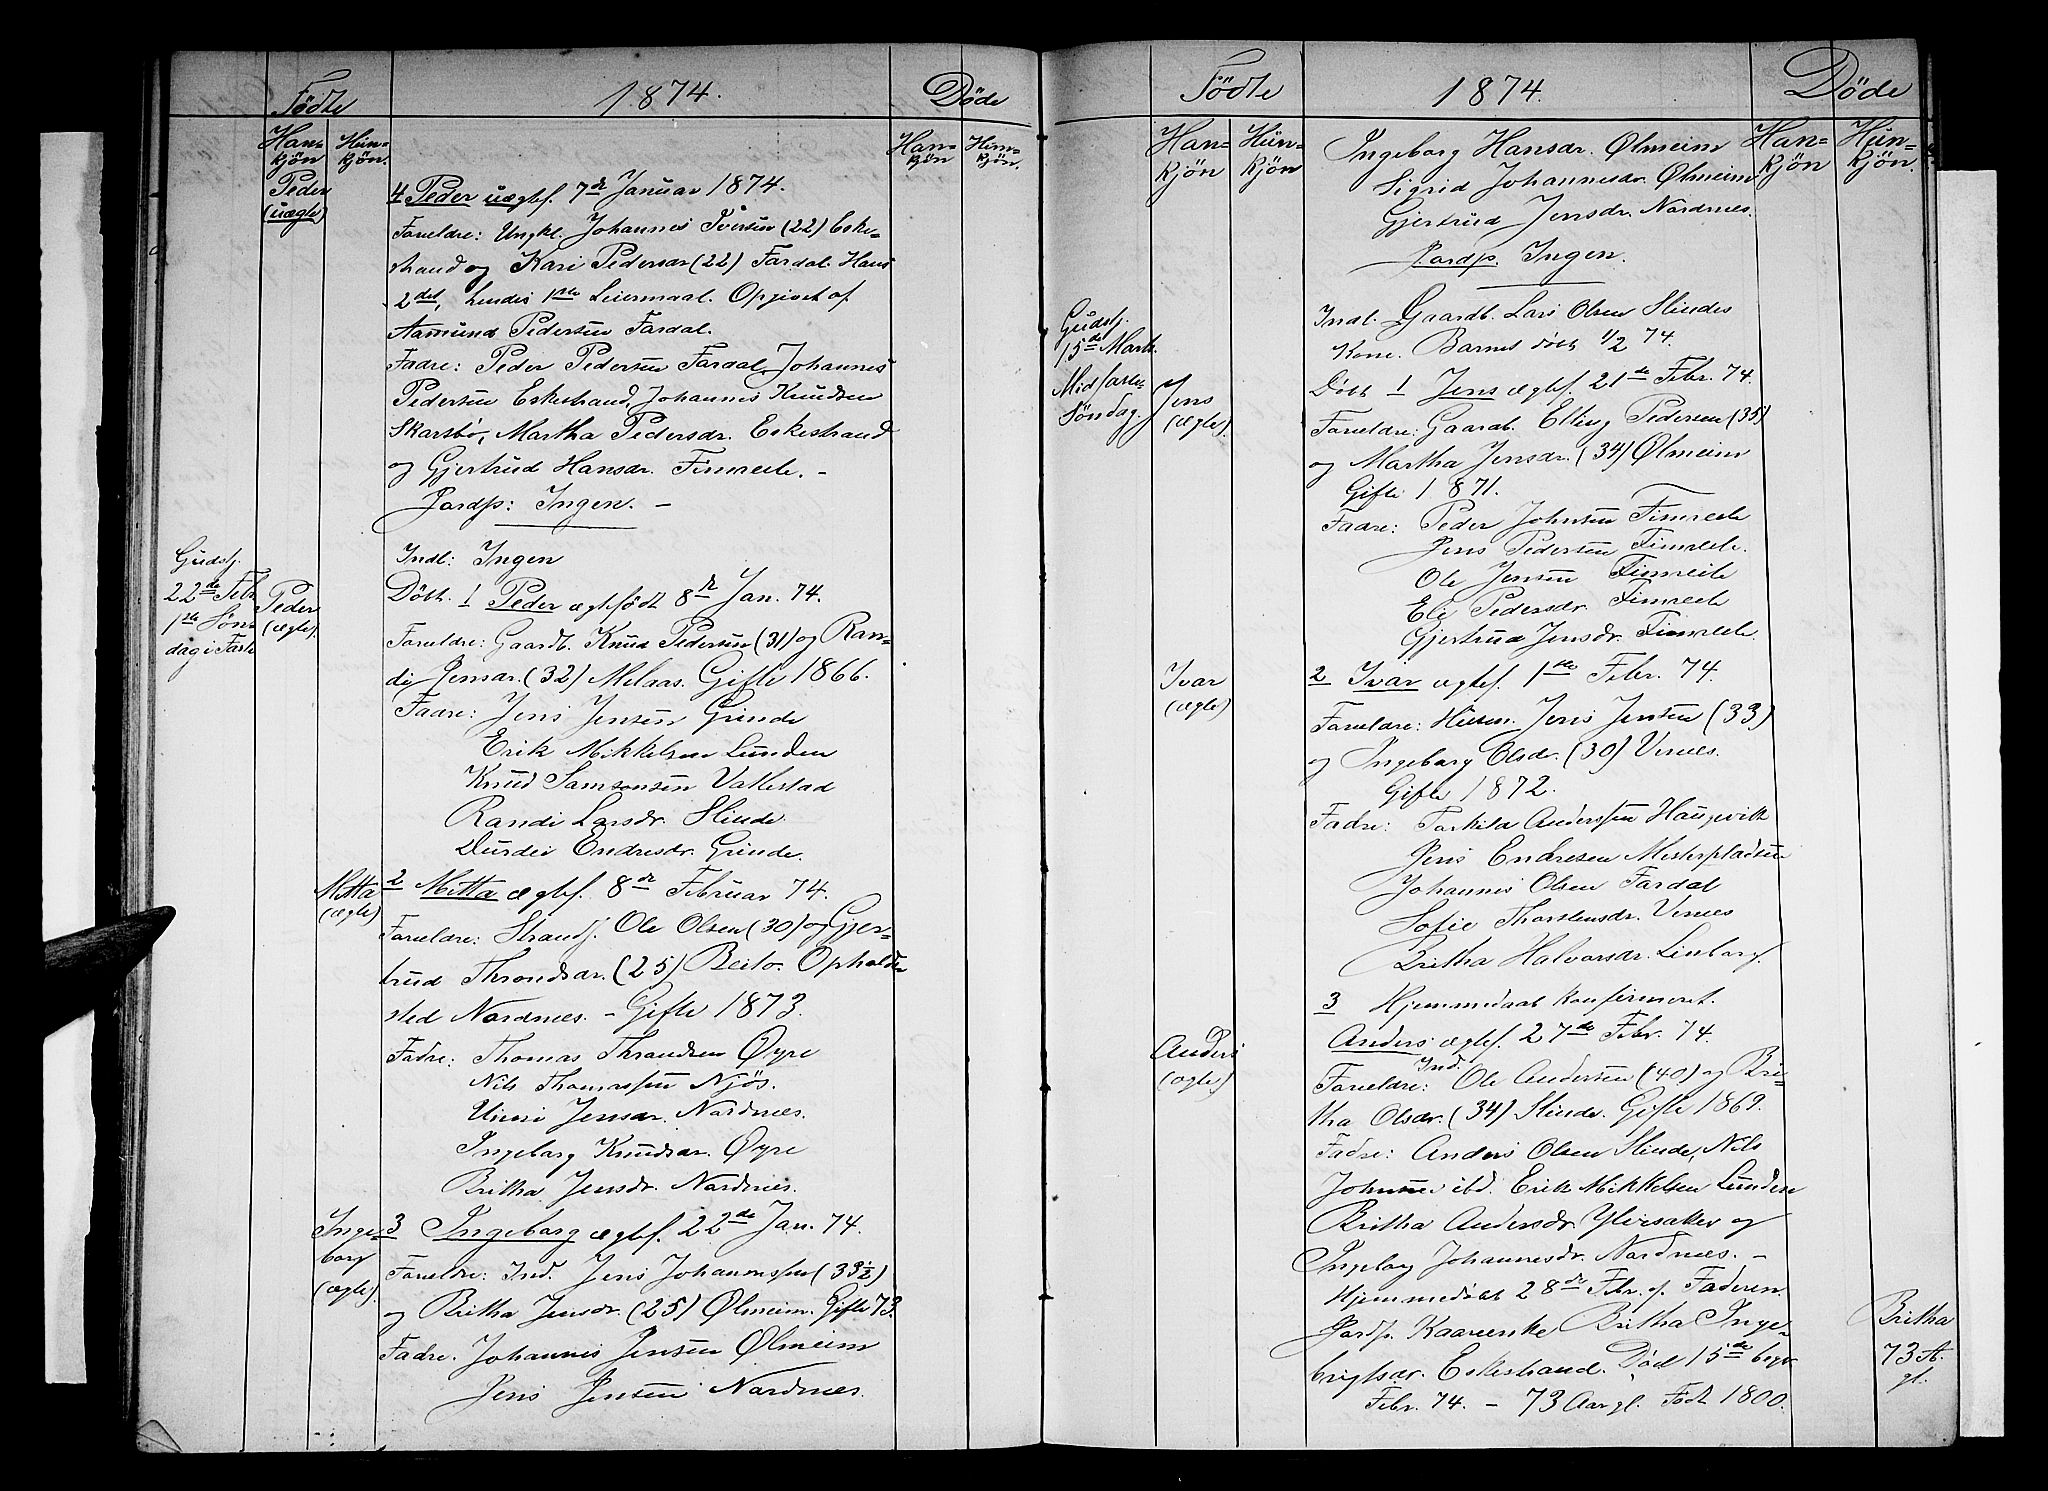 Födte
1874.
Döde
Han-
kjön
Hun-
kjön.
Han-
kjön
Hun-
kjön.
Peder
(uægte)
4 Peder uægtef. 7de Januar 1874.
Forældre: Ungkl. Johannes Iversen (22) Eske-
strand og Kari Pedersdr (22) Fardal. Hans
2det, hendes 1ste Leiermaal. Opgivet af
Aamund Pedersen Fardal.
Fadre: Peder Pedersen Fardal, Johannes
Pedersen Eskestrand, Johannes Knudsen
Skarsbö, Martha Pedersdr. Eskestrand
og Gjertrud Hansdr. Fimreite. -
Jordp: Ingen. -
Gudstj.
22de Febr
1ste Søn-
dag i Faste
Peder
(ægte).
Indl: Ingen
Döbt. 1 Peder ægtefödt 8de Jan. 74.
Forældre: Gaardb. Knud Pedersen (31) og Ran-
di Jensdr. (32) Melaas. Gifte 1866.
Fadre: Jens Jensen Grinde
Erik Mikkelsen Lunden
Knud Samsonsen Vallestad
Randi Larsdr. Slinde.
Durdei Endresdr. Grinde.
Mitta
(ægte)
2 Mitta ægtef. 8de Februar 74.
Forældre: Strands. Ole Olsen (30) og Gjer-
trud Throndsdr. (25) Reito. Opholds-
sted Nordnes. - Gifte 1873.
Fadre: Thomas Throndsen Øyre
Nils Thomassen Njøs.
Unni Jensdr. Nordnæs.
Ingeborg Knudsdr. Øyre
Britha Jensdr. Nordnæs.
Inge-
borg
(ægte).
3 Ingeborg ægtef. 22de Jan. 74.
Forældre: Ind. Jens Johannessen (33½)
og Britha Jensdr. (25) Ølmeim. Gifte 73.
Fadre. Johannes Jensen Ølmeim
Jens Jensen Nordnæs.
Födte
1874.
Döde
Han-
kjön
Hun-
kjön
Han-
kjön
Hun-
kjön.
Ingeborg Hansdr. Ølmeim
Sigrid Johannesdr. Ølmeim
Gjertrud Jensdr. Nordnes.
Jordp. Ingen.
Gudstj.
15de Marts.
Midfaste-
Söndag.
Jens
(ægte).
Indl. Gaardb. Lars Olsen Slindes
Kone. Barnet döbt 1/2 74.
Döbt 1 Jens ægtef. 21de Febr. 74.
Forældre: Gaardb. Elling Pedersen (35)
og Martha Jensdr. (34) Ølmeim
Gifte 1871.
Fadre: Peder Johnsen Fimreite
Jens Pedersen Fimreite.
Ole Jensen Fimreite
Eli Pedersdr. Fimreite
Gjertrud Jensdr. Fimreite.
Ivar
(ægte)
2 Ivar ægtef. 1ste Febr. 74.
Forældre: Husm. Jens Jensen (33)
og Ingeborg Olsdr. (30) Vines.
Gifte 1872.
Fadre: Torkild Anderssen Haugvik
Jens Endresen Mesterpladsen
Johannes Olsen Fardal
Sofie Thorstensdr. Vines
Britha Halvorsdr. Linborg.
Anders
(ægte)
3 Hjemmedaab konfirmeret.
Anders ægtef. 27de Febr. 74.
Forældre: Ind. Ole Andersen (40) og Bri-
tha Olsdr. (34) Slinde. Gifte 1869.
Fadre: Anders Olsen Slinde, Nils
Johnsen ibd. Erik Mikkelsen Lunden
Britha Andersdr. Ylvisaker og
Ingeborg Johannesdr. Nordnæs. -
Hjemmedöbt 28de Febr. af Faderen.
Britha
73 A.
gl.
Jordp. Kaarenke Britha Inge-
brigtsdr. Eskestrand. Död 15de begr
Febr. 74. - 73 Aar gl. Födt 1800.